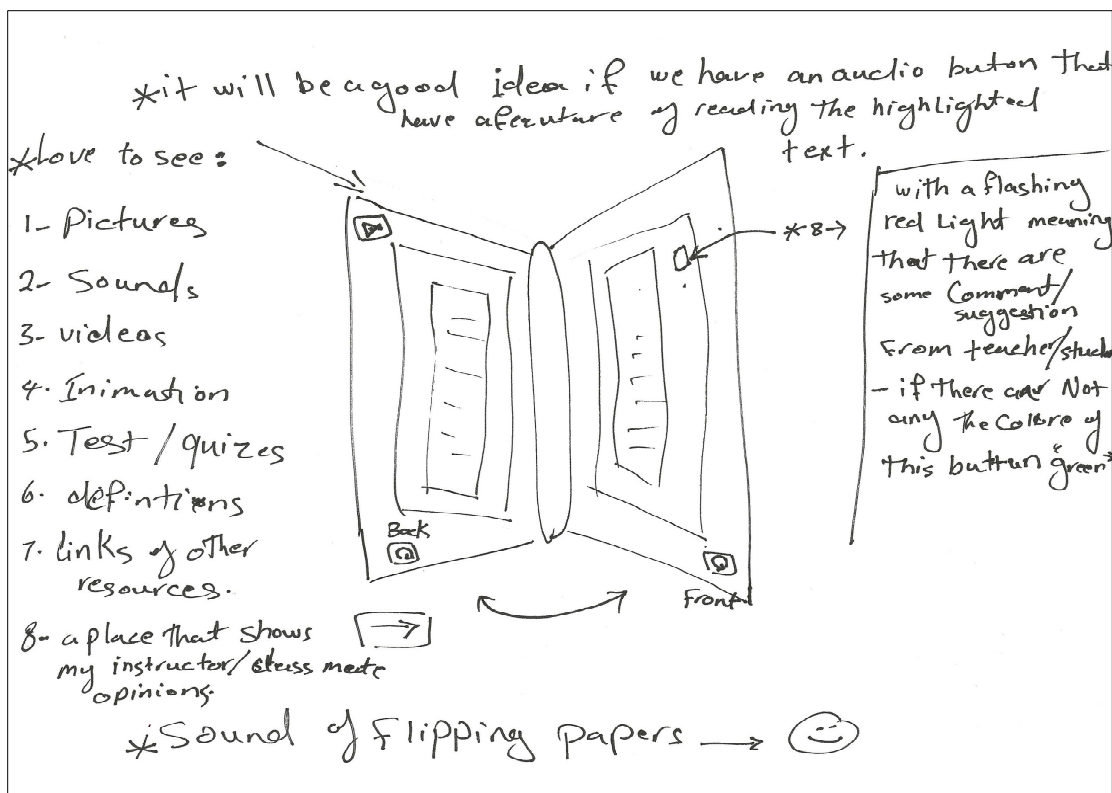 *it will be a good idea if we have an audio buton that
have aferuture of reading the highlighted
text.
*Love to see:
1- Pictures
2- Sounds
3- videos
4. Inimation
5. Test / quizes
6. defintions
7. links of other
resources.
8- a place that shows
my instructor/class mate
opinions.
Back
Front
*8→
with a flashing
red Light meaning
that there are
some Comment/
suggestion
From teacher/stude
- if there are Not
any the Colore of
this buttun "green"
*Sound of Flipping papers →